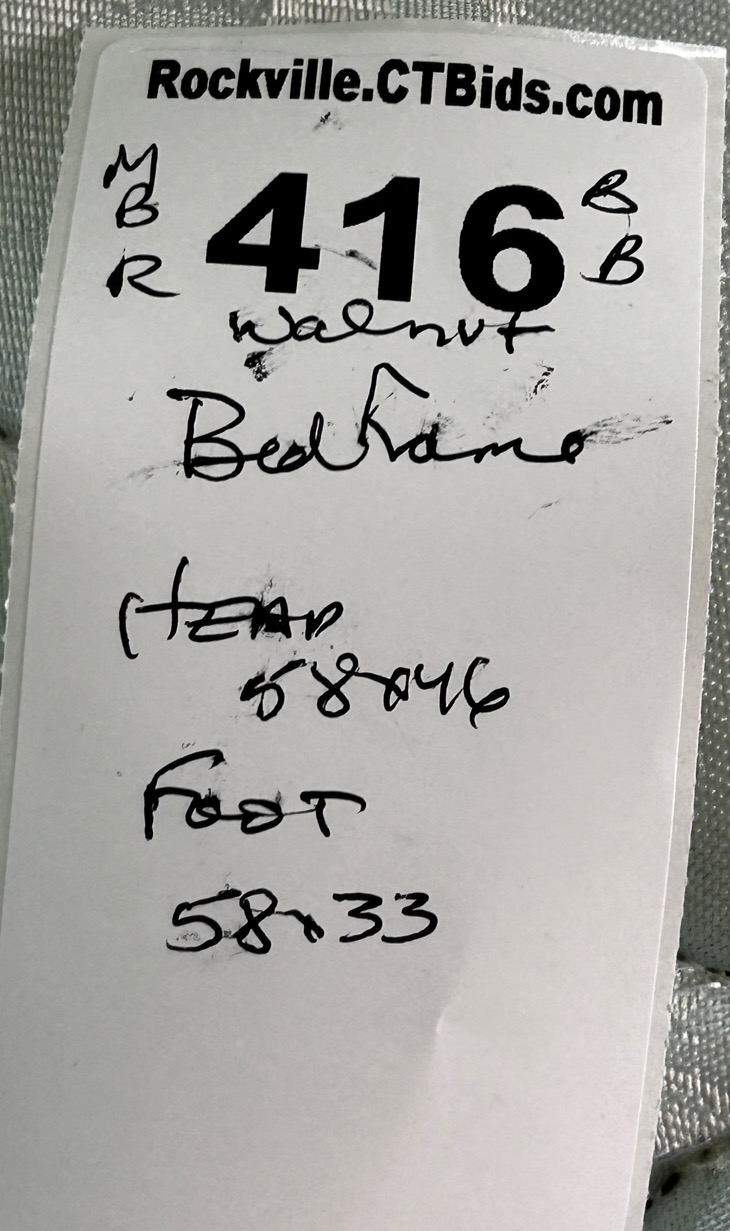 Rockville.CTBids.com
M
B
R
416
B
B
Walnut
Bedframe
HEAD
58x46
FOOT
58x33